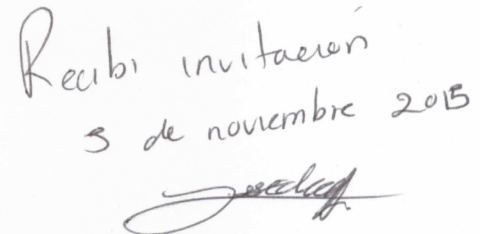 Recibi invitación
5 de noviembre 2015